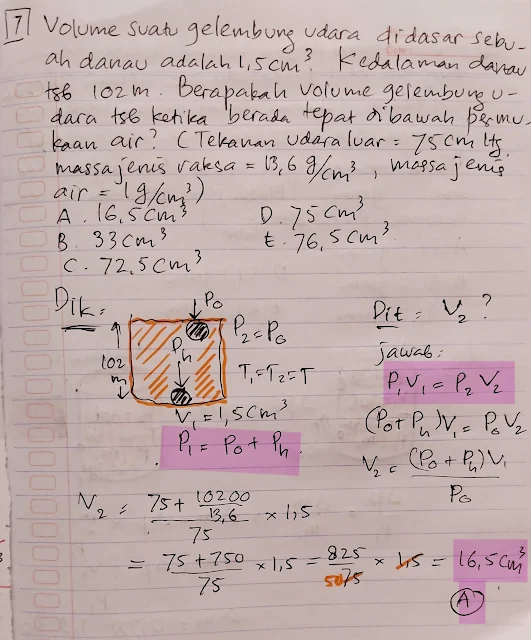 7 Volume suatu gelembung udara didasar sebu-
ah danau adalah 1,5 cm³. Kedalaman danau
tsb 102 m. Berapakah volume gelembung u-
dara tsb ketika berada tepat dibawah permu-
kaan air? (Tekanan udara luar = 75 cm Hg,
massa jenis raksa = 13,6 g/cm³, massa jenis
air = 1 g/cm³)
A. 16,5 cm³ D. 75 cm³
B. 33 cm³ E. 76,5 cm³
C. 72,5 cm³
Dik: Dit: V₂?
P₀
P₂ = P₀
Pₕ
102 m
T₁ = T₂ = T
V₁ = 1,5 cm³
P₁ = P₀ + Pₕ
jawab:
P₁V₁ = P₂V₂
(P₀ + Pₕ)V₁ = P₀V₂
V₂ = (P₀ + Pₕ)V₁ / P₀
V₂ = (75 + 10200/13,6) / 75 × 1,5
= (75 + 750) / 75 × 1,5 = 825 / 75 × 1,5 = 16,5 cm³
50
A